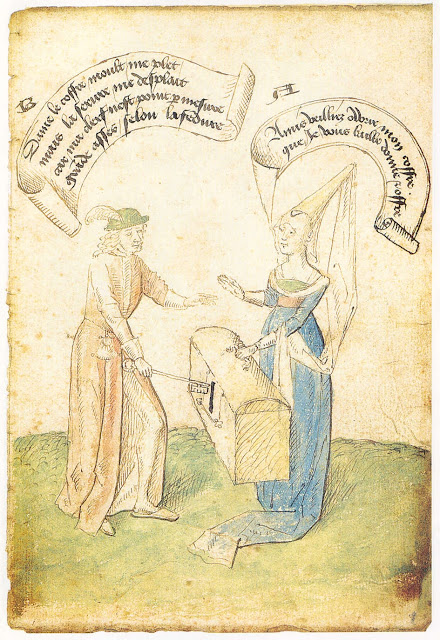 B
Dame le coffre moult me plet
mais la serure me desplait
car ma clef nest point p mesure
grãde asses selon la fẽdure
A
Amis veilliez ovrir mon coffre .
que Je vous baille donne & offre